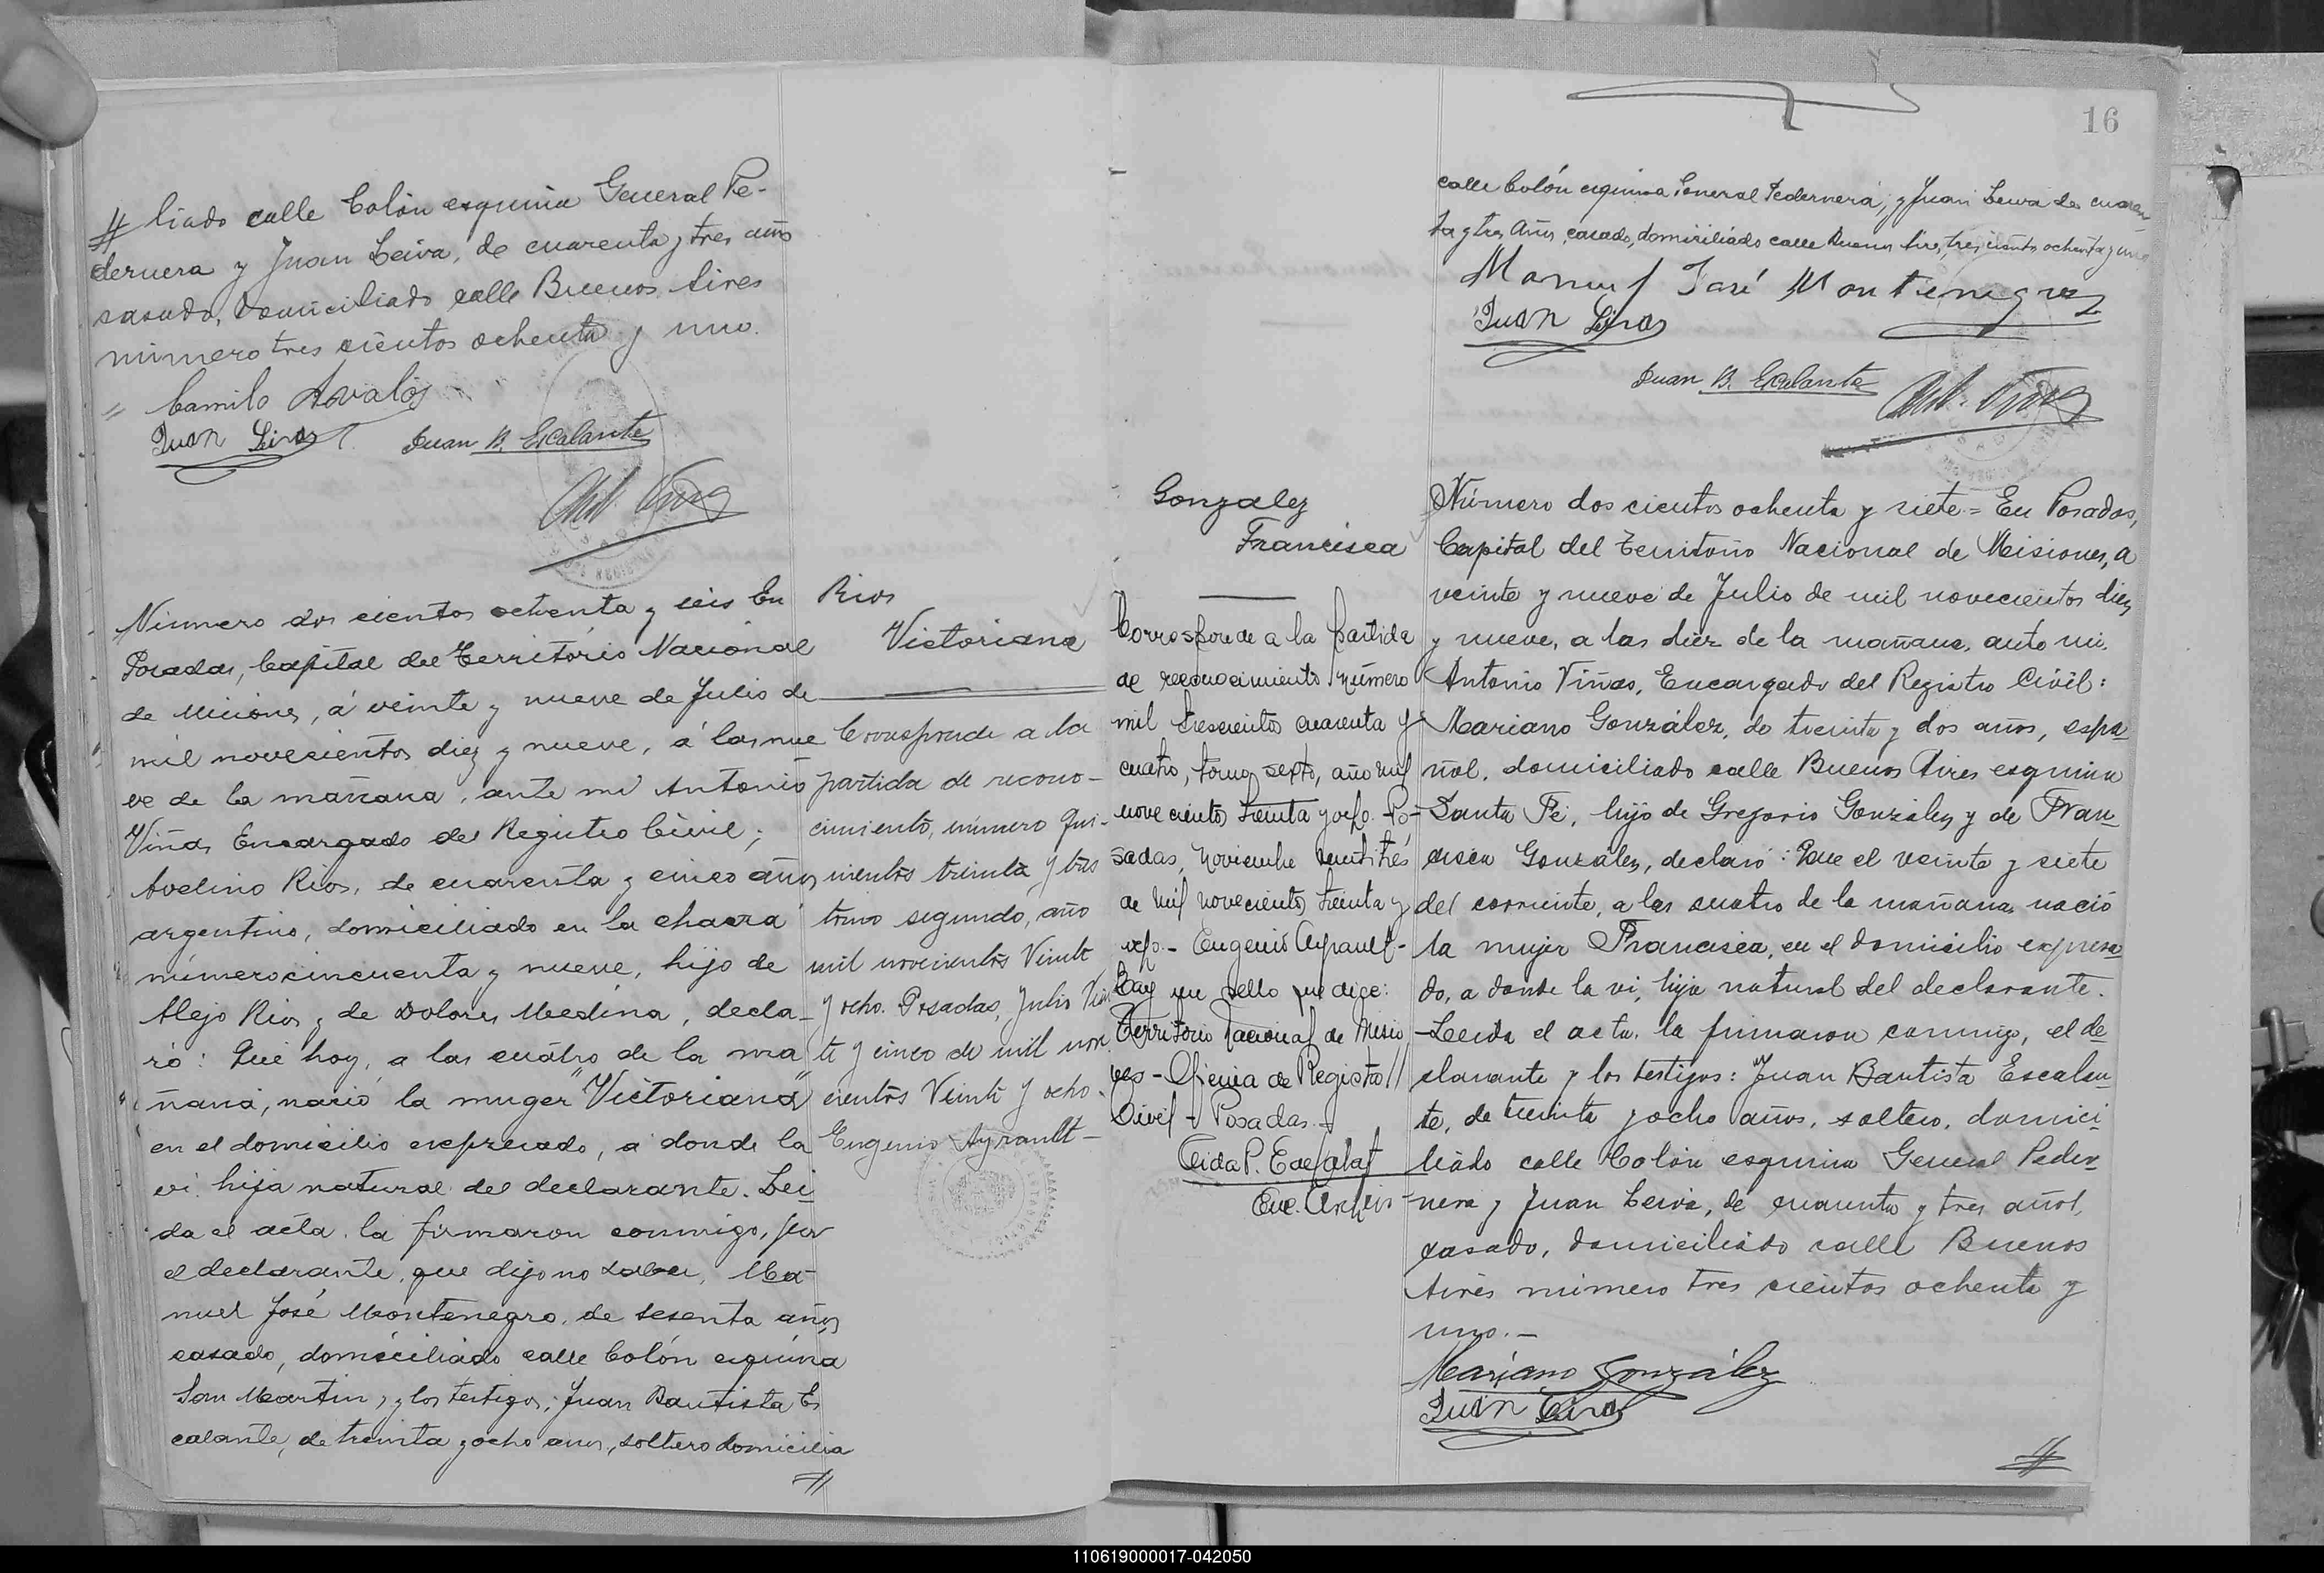 # liado calle Colón esquina General Pe-
dernera y Juan Leiva, de cuarenta y tres años
casado, domiciliado calle Buenos Aires
número tres cientos ochenta y uno.
Camilo Avalos
Juan Leiva
Juan B. Escalante
Ant. Viñas
Número dos cientos ochenta y seis En
Posadas, Capital del Territorio Nacional
de Misiones, á veinte y nueve de Julio de
mil novecientos diez y nueve, á las nue
ve de la mañana, ante mi Antonio
Viñas Encargado del Registro Civil;
Avelino Rios, de cuarenta y cinco años
argentino, domiciliado en la chacra
número cincuenta y nueve, hijo de
Alejo Rios y de Dolores Medina, decla-
ró: Que hoy, a las cuatro de la ma
ñana, nació la muger "Victoriana"
en el domicilio expresado, a donde la
vi. hija natural del declarante. Lei
da el acta. la firmaron conmigo, por
el declarante, que dijo no saber, Ma-
nuel José Montenegro, de sesenta años
casado, domiciliado calle Colón esquina
San Martin, y los testigos; Juan Bautista Es
calante, de treinta y ocho anos, soltero domicilia
#
Rios
Victoriana
Corresponde a la
partida de recono-
cimiento, número qui-
nientos treinta y tres
tomo segundo, año
mil novecientos Veinte
y ocho. Posadas, Julio Vein
te y cinco de mil nove
cientos Veinte y ocho.
Eugenio Ayrault-
16
calle Colón esquina General Pedernera, y Juan Leiva de cuaren
ta y tres Años, casado, domiciliado calle Buenos Aires, tres cientos ochenta y uno
Manuel José Montenegro
Juan Leiva
Juan B. Escalante
Ant. Viñas
Gonzalez
Francisca
Corresponde a la partida
de reconocimiento número
mil trescientos cuarenta y
cuatro, tomo sexto, año mil
novecientos treinta y ocho. Po-
sadas, Noviembre veintitrés
de mil novecientos treinta y
ocho.- Eugenio Ayrault-
Hay un sello que dice:
Territorio Nacional de Misio
nes - Oficina de Registro
Civil - Posadas.-
Número dos cientos ochenta y siete = En Posadas,
Capital del Territorio Nacional de Misiones, a
veinte y nueve de Julio de mil novecientos diez
y nueve, a las diez de la mañana, ante mi,
Antonio Viñas, Encargado del Registro Civil:
Mariano González, de treinta y dos años, espa
ñol, domiciliado calle Buenos Aires esquina
Santa Fé, hijo de Gregorio González y de Fran
cisca González, declaró: Que el veinte y siete
del corriente, a las cuatro de la mañana, nació
la mujer Francisca, en el domicilio expresa
do, a donde la vi, hija natural del declarante.
-Leida el acta, la firmaron conmigo, el de
clarante y los testigos: Juan Bautista Escalan
te, de treinta y ocho años, soltero, domici
liado calle Colón esquina General Peder
nera y Juan Leiva, de cuarenta y tres años,
casado, domiciliado calle Buenos
Aires número tres cientos ochenta y
uno.-
Mariano González
Juan Leiva
#
110619000017-042050